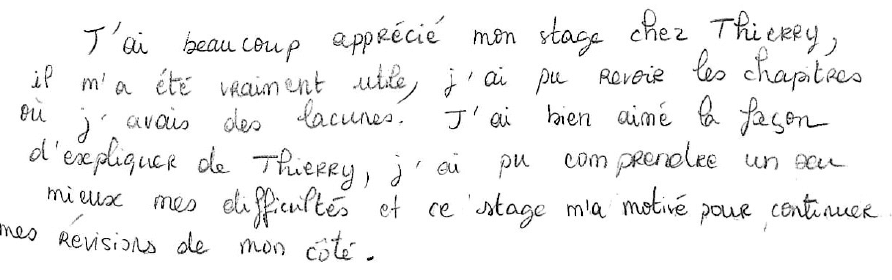 J'ai beaucoup apprécié mon stage chez Thierry,
il m'a été vraiment utile, j'ai pu revoir les chapitres
où j'avais des lacunes. J'ai bien aimé la façon
d'expliquer de Thierry, j'ai pu comprendre un peu
mieux mes difficultés et ce stage m'a motivé pour continuer
mes révisions de mon côté.